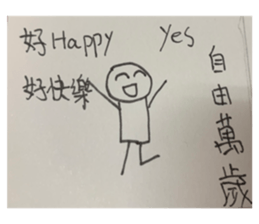 好Happy
yes
好快樂
自由萬歲